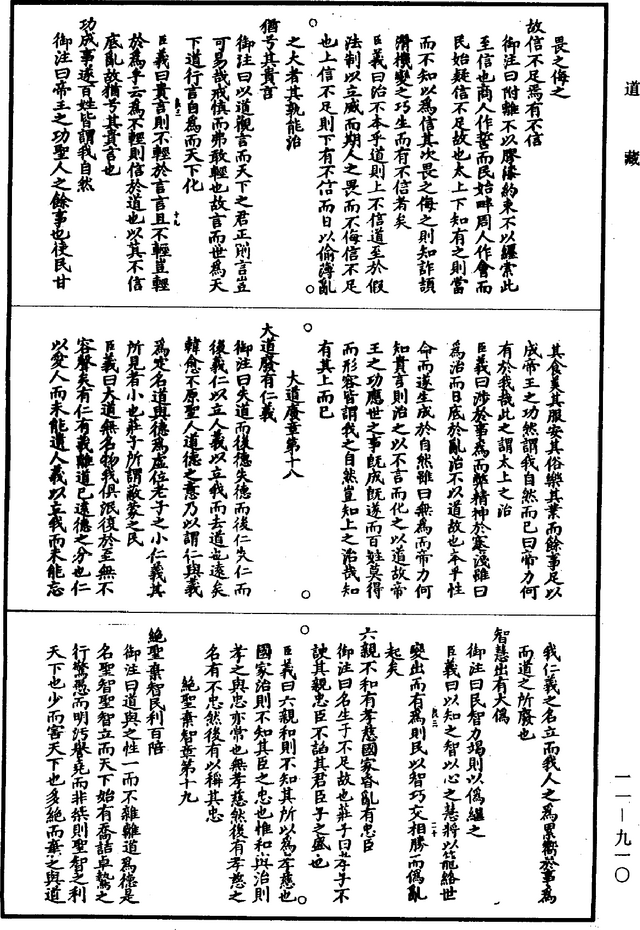 道藏
畏之侮之
故信不足焉有不信
御注曰附離不以膠漆約束不以纆索此
至信也商人作誓而民始畔周人作會而
民始疑信不足故也太上下知有之則當
而不知以為信其次畏之侮之則知詐頡
滑機變之巧生而有不信者矣
臣義曰治不本乎道則上不信道至於假
法制以立威而期人之畏而不侮信不足
也上信不足則下有不信而日以偷薄亂
之大者其孰能治
猶兮其貴言
御注曰以道觀言而天下之君正則言豈
可易哉戒慎而弗敢輕也故言而世為天
下道行言自為而天下化
臣義曰貴言則不輕於言言且不輕豈輕
於為乎云為不輕則信於道也以其不信
底亂故猶兮其貴言也
功成事遂百姓皆謂我自然
御注曰帝王之功聖人之餘事也使民甘
其食美其服安其俗樂其業而餘事足以
成帝王之功然謂我自然而已曰帝力何
有於我哉此之謂太上之治
臣義曰涉於事為而弊精神於蹇淺雖曰
為治而日底於亂治不以道故也本乎性
命而遂生成於自然雖曰無為而帝力何
知貴言則治之以不言而化之以道故帝
王之功應世之事既成既遂而百姓莫得
而形容皆謂我之自然豈知上之治哉知
有其上而已
大道廢章第十八
大道廢有仁義
御注曰失道而後德失德而後仁失仁而
後義仁以立人義以立我而去道也遠矣
韓愈不原聖人道德之意乃以謂仁與義
為定名道與德為虛位老子之小仁義其
所見者小也莊子所謂蔽蒙之民
臣義曰大道無名物我俱泯復於至無不
容聲矣有仁有義離道已遠德之分也仁
以愛人而未能遺人義以立我而未能忘
我仁義之名立而我人之為累嚮於事為
而道之所廢也
智慧出有大偽
御注曰民智力竭則以偽繼之
臣義曰以知之智以心之慧將以籠絡世
變出而有為則民以智巧交相勝而偽亂
起矣
六親不和有孝慈國家昏亂有忠臣
御注曰名生于不足故也莊子曰孝子不
諛其親忠臣不諂其君臣子之盛也
臣義曰六親和則不知其所以為孝慈也
國家治則不知其臣之忠也惟和與治則
孝之與忠亦常也無孝慈然後有孝慈之
名有不忠然後有以稱其忠
絕聖棄智章第十九
絕聖棄智民利百陪
御注曰道與之性一而不雜離道為德是
名聖智聖智立而天下始有喬詰卓鷙之
行驚愚而明汚譽堯而非桀則聖智之利
天下也少而害天下也多絕而棄之與道
一一－九一〇